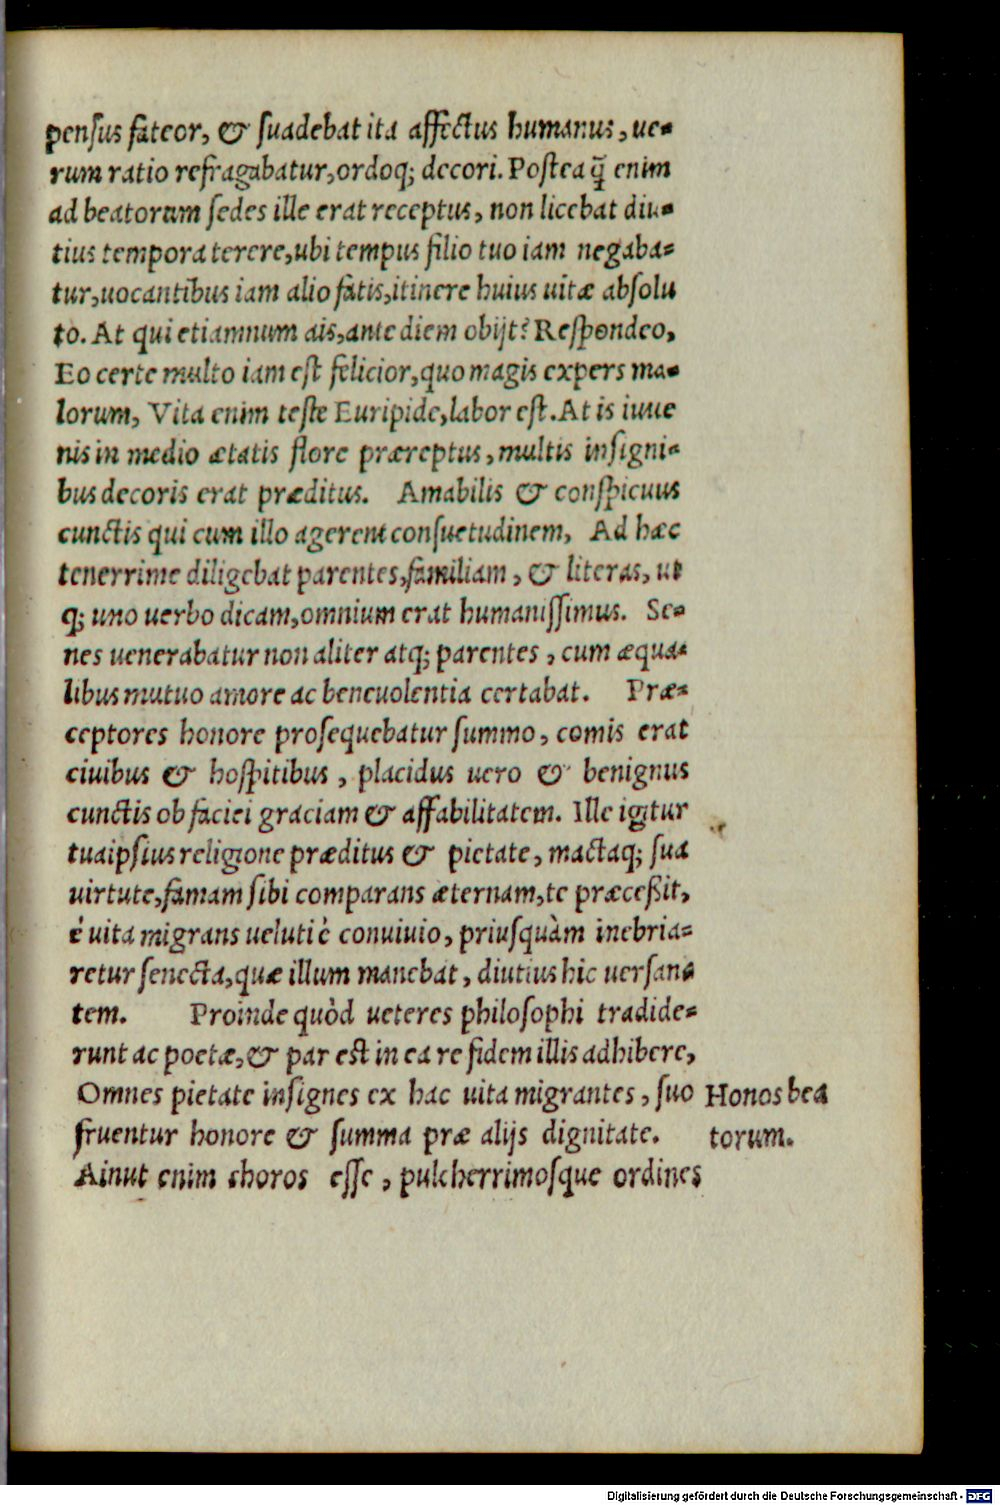 pensus fateor, & suadebat ita affectus humanus, ue-
rum ratio refragabatur, ordoq; decori. Postea q̃ enim
ad beatorum sedes ille erat receptus, non licebat diu-
tius tempora terere, ubi tempus filio tuo iam negaba-
tur, uocantibus iam alio fatis, itinere huius uitæ absolu
to. At qui etiamnum ais, ante diem obijt? Respondeo,
Eo certe multo iam est felicior, quo magis expers ma-
lorum, Vita enim teste Euripide, labor est. At is iuue
nis in medio ætatis flore præreptus, multis insigni-
bus decoris erat præditus. Amabilis & conspicuus
cunctis qui cum illo agerent consuetudinem, Ad hæc
tenerrime diligebat parentes, familiam, & literas, ut
q; uno uerbo dicam, omnium erat humanissimus. Se-
nes uenerabatur non aliter atq; parentes, cum æqua-
libus mutuo amore ac beneuolentia certabat. Præ-
ceptores honore prosequebatur summo, comis erat
ciuibus & hospitibus, placidus uero & benignus
cunctis ob faciei graciam & affabilitatem. Ille igitur
tua ipsius religione præditus & pietate, mactaq; sua
uirtute, famam sibi comparans æternam, te præceßit,
è uita migrans ueluti è conuiuio, priusquàm inebria-
retur senecta, quæ illum manebat, diutius hic uersan-
tem. Proinde quòd ueteres philosophi tradide-
runt ac poetæ, & par est in ea re fidem illis adhibere,
Omnes pietate insignes ex hac uita migrantes, suo
fruentur honore & summa præ alijs dignitate.
Ainut enim choros esse, pulcherrimosque ordines
Honos bea
torum.
Digitalisierung gefördert durch die Deutsche Forschungsgemeinschaft - DFG